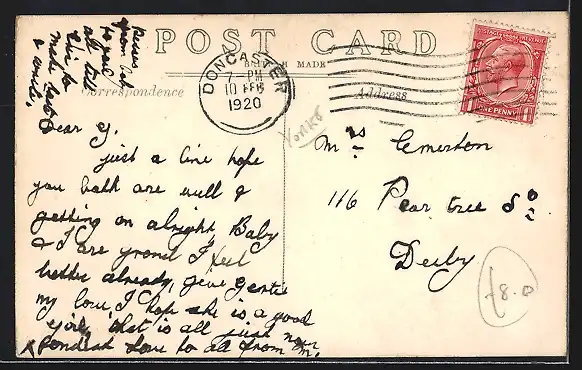 POST CARD
BRITISH MADE
Correspondence
Address
DONCASTER
7 - PM
10 FEB
1920
POSTAGE REVENUE
ONE PENNY
1 1
Yorks
kisses
from
to you
all till
this to
make
a smile,
Dear G.
just a line hope
you both are well &
getting on alright, Baby
& I are grand I feel
better already, give Gertie
my love, I hope she is a good
girl, that is all just now
Fondest Love to all from M.
Mrs Emerton
116 Pear tree St
Derby
£8.0